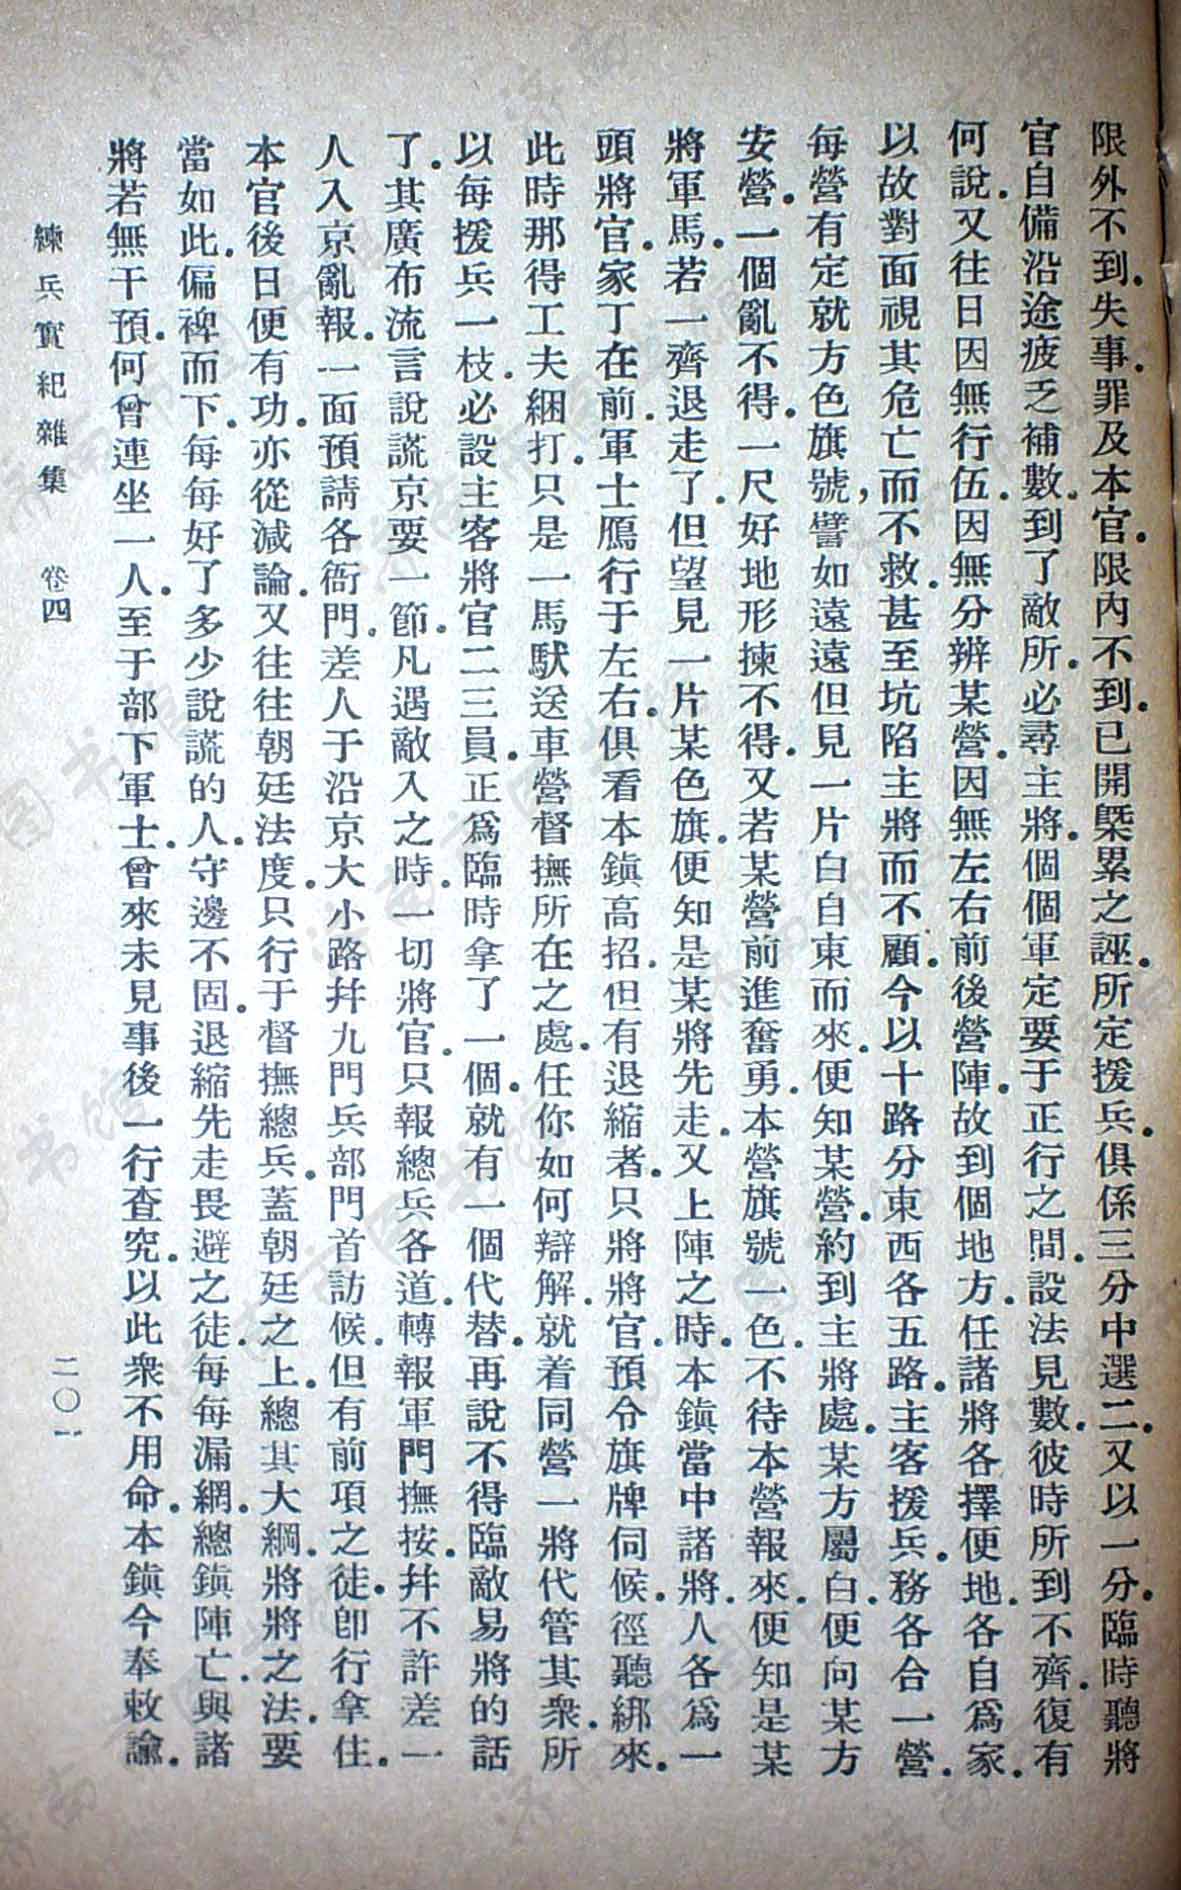 限外不到。失事。罪及本官。限內不到。已開槩累之誣。所定援兵。俱係三分中選二。又以一分。臨時聽將
官自備沿途疲乏補數。到了敵所。必尋主將。個個軍定要于正行之間。設法見數。彼時所到不齊。復有
何說。又往日因無行伍。因無分辨某營。因無左右前後營陣。故到個地方。任諸將各擇便地。各自為家。
以故對面視其危亡而不救。甚至坑陷主將而不顧。今以十路分東西各五路。主客援兵。務各合一營。
每營有定就方色旗號，譬如遠遠但見一片白自東而來。便知某營。約到主將處。某方屬白。便向某方
安營。一個亂不得。一尺好地形揀不得。又若某營前進奮勇。本營旗號一色。不待本營報來。便知是某
將軍馬。若一齊退走了。但望見一片某色旗。便知是某將先走。又上陣之時。本鎮當中諸將。人各為一
頭將官。家丁在前。軍士鴈行于左右。俱看本鎮高招。但有退縮者。只將將官。預令旗牌伺候。徑聽綁來。
此時那得工夫綑打。只是一馬馱送車營督撫所在之處。任你如何辯解。就着同營一將代管其衆。所
以每援兵一枝。必設主客將官二三員。正為臨時拿了一個。就有一個代替。再說不得臨敵易將的話
了。其廣布流言說謊京要一節。凡遇敵入之時。一切將官。只報總兵各道。轉報軍門撫按。幷不許差一
人入京亂報。一面預請各衙門。差人于沿京大小路幷九門兵部門首訪候。但有前項之徒。卽行拿住。
本官後日便有功。亦從減論。又往往朝廷法度。只行于督撫總兵。蓋朝廷之上。總其大綱。將將之法。要
當如此。偏裨而下。每每好了多少說謊的人。守邊不固。退縮先走畏避之徒。每每漏網。總鎮陣亡。與諸
將若無干預。何曾連坐一人。至于部下軍士。曾來未見事後一行查究。以此衆不用命。本鎮今奉敕諭。
練兵實紀雜集　卷四　二〇一